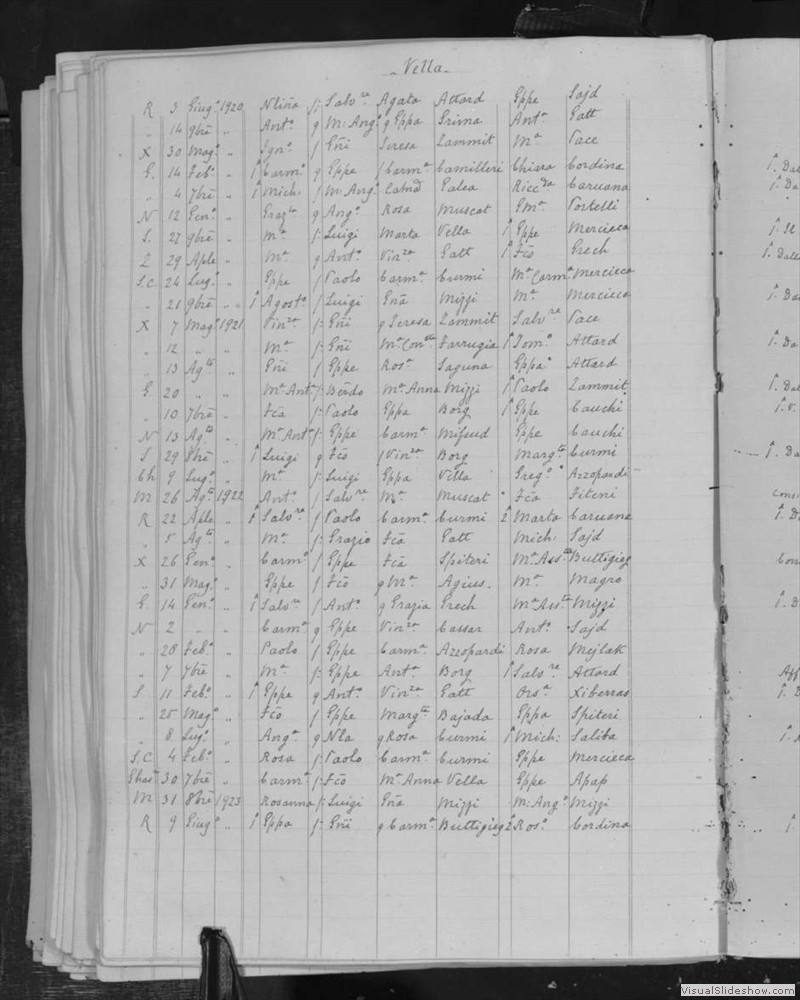 Vella
R 3 Giug.º 1920 Nliña f: Salv.re Agata Attard Eppe Sajd
" 14 9bre " Ant.ª g M: Ang.º g Eppa Grima Ant.ª Gatt
X 30 Mag.º " f Eñi Teresa Zammit M.ª Pace
G. 14 Feb.º " 1 Carm.º g Eppe f Carm.ª Camilleri Chiara Cordina
" 4 7bre " 1 Mich: f M: Ang.º Galea Ricc.da Caruana
N 12 Gen.º " Graz.la g Ang.º Rosa Muscat Portelli
S. 27 9bre " M.ª f: Luigi Marta Vella 1 Eppe Mercieca
Z 29 Aple " M.ª g Ant.º Vin.za Gatt 1 Fco Grech
S.C. 24 Lug.º " Eppe f Paolo Carm.ª Curmi M.ª Carm.ª Mercieca
" 21 9bre " 1 Agost.º f Luigi Eña Mizzi M.ª Mercieca
X 7 Mag.º 1921 Vin.za f: Eñi g Teresa Zammit Salv.re Pace
" 12 " " M.ª f: Eñi M.ª Con.tta Farrugia 1 Tom.º Attard
" 13 Ag.to " Eñi f Eppe Ros.ª Saguna Eppa Attard
G. 20 " " M.ª Ant.ª f: Berdo M.ª Anna Mizzi 1 Paolo Zammit
" 10 7bre " Fca f: Paolo Eppa Borg 1 Eppe Cauchi
N 13 Ag.to " M.ª Ant.ª f: Eppe Carm.ª Mifsud Eppe Cauchi
S 29 8bre " 1 Luigi g Fco f Vin.za Borg Marg.ta Curmi
Ch 9 Lug.º " M.ª f: Luigi Eppa Vella Greg.º Azzopardi
M 26 Ag.to 1922 Ant.ª f Salv.re M.ª Muscat Fca Fiteni
R 22 Aple " 1 Salv.re f Paolo Carm.ª Curmi 2 Marta Caruana
" 5 Ag.to " M.ª f: Grazio Fca Gatt Mich: Sajd
X 26 Gen.º " Carm.º f Eppe Fca Spiteri M.ª Ass.ta Buttigieg
" 31 Mag.º " Eppe f Fco g M.ª Agius M.ª Magro
G. 14 Gen.º " 1 Salv.re f Ant.º g Grazia Grech M.ª Ass.ta Mizzi
N 2 " " Carm.ª g Eppe Vin.za Cassar Ant.º Sajd
" 28 Feb.º " Paolo f Eppe Carm.ª Azzopardi Rosa Mejlak
" 7 7bre " M.ª f: Eppe Ant.ª Borg 1 Salv.re Attard
S 11 Feb.º " 1 Eppe g Ant.º Vin.za Gatt Ors.ª Xiberras
" 25 Mag.º " Fco f Eppe Marg.ta Bajada Eppa Spiteri
" 8 Lug.º " Ang.ª g Nla g Rosa Curmi 1 Mich: Saliba
S.C. 4 Feb.º " Rosa f: Paolo Carm.ª Curmi Eppe Mercieca
Ghas 30 7bre " Carm.ª f: Fco M.ª Anna Vella Eppe Apap
M 31 8bre 1923 Rosanna f: Luigi Eña Mizzi M: Ang.º Mizzi
R 9 Giug.º " 1 Eppa f: Eñi g Carm.ª Buttigieg 2 Ros.º Cordina
VisualSlideshow.com